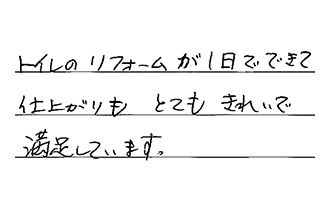 トイレのリフォームが1日でできて
仕上がりも とても きれいで
満足しています。